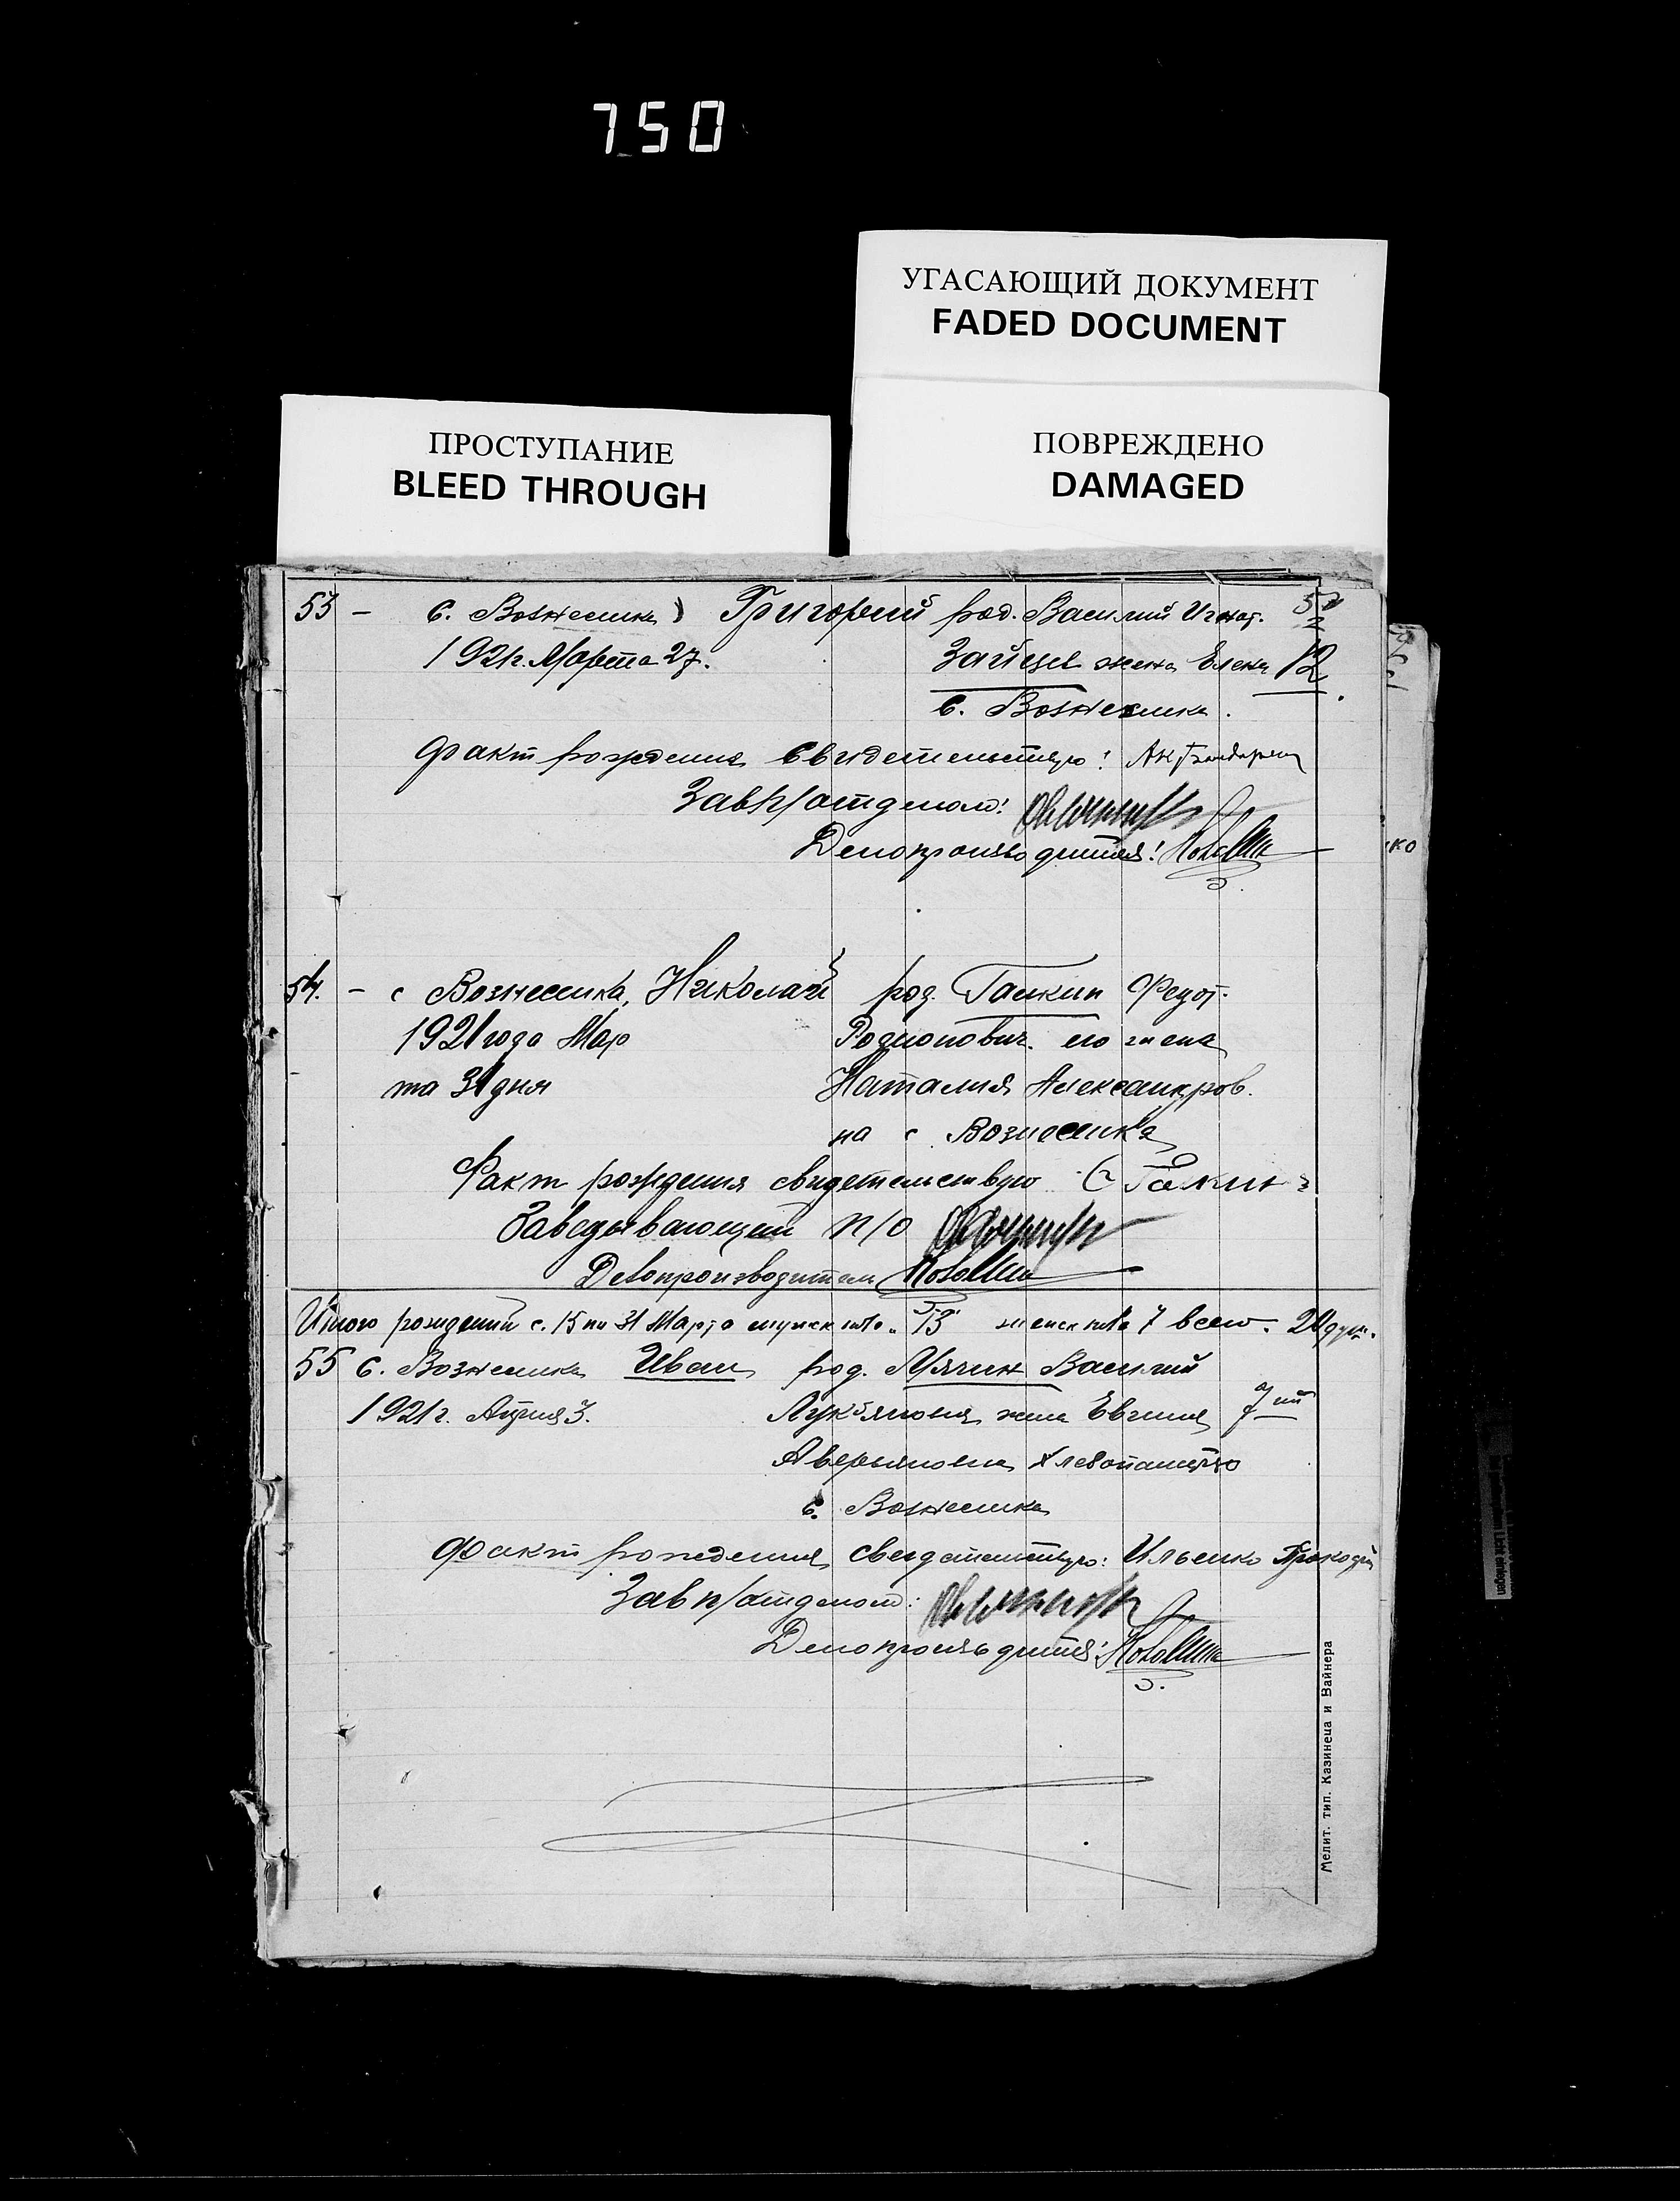 750
УГАСАЮЩИЙ ДОКУМЕНТ
FADED DOCUMENT
ПРОСТУПАНИЕ
BLEED THROUGH
ПОВРЕЖДЕНО
DAMAGED
53 – с. Вознесенка Григорий род. Василий Игнат.
1921г. Марта 27. Зайцев жена Елена 12
с. Вознесенка.
Факт рождения свидетельствую:
Зав п/отделом:
Делопроизводитель:
54. – с Вознесенка, Николай род. Галкин Федот.
1921 года Мар Родионович. его жена
та 31 дня Наталия Александров.
на с Вознесенка
Факт рождения свидетельствую Галкин
Заведывающий п/о
Делопроизводитель
Итого рождений с. 15 по 31 Марта мужск пола 13 женск пола 7 всего. 20 душ.
55 с. Вознесенка Иван род. Мячин Василий
1921г. Апреля 3. Лукьянович жена Евгения 7ой
Аверьяновна Хлебопашество
с. Вознесенка
Факт рождения свидетельствую: Ильенко
Зав п/отделом:
Делопроизводитель:
ко
Мелит. тип. Казинеца и Вайнера